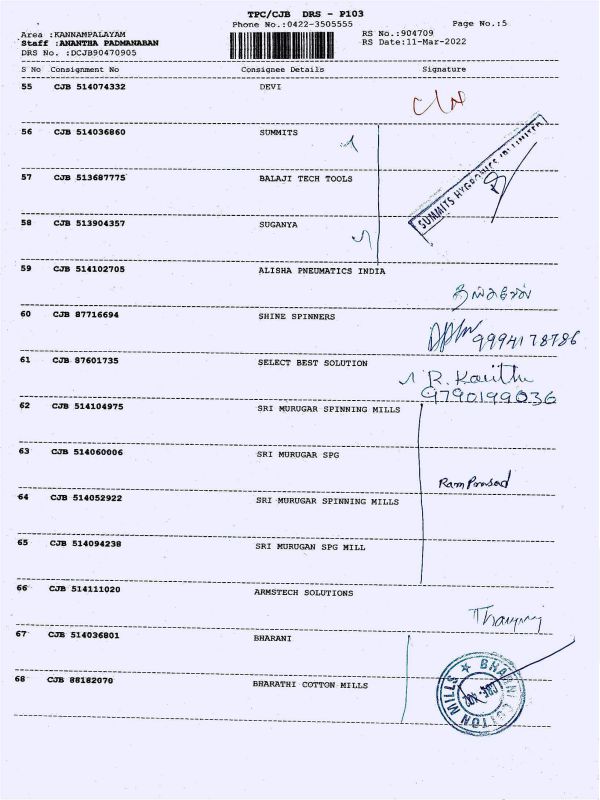 TPC/CJB DRS - P103
Phone No.:0422-3505555
Page No.:5
Area :KANNAMPALAYAM
RS No.:904709
Staff :ANANTHA PADMANABAN
RS Date:11-Mar-2022
DRS No. :DCJB90470905
S No Consignment No Consignee Details Signature
55 CJB 514074332 DEVI
56 CJB 514036860 SUMMITS
SUMMITS HYGRONICS
57 CJB 513687775 BALAJI TECH TOOLS
58 CJB 513904357 SUGANYA
59 CJB 514102705 ALISHA PNEUMATICS INDIA
60 CJB 87716694 SHINE SPINNERS
9994178786
61 CJB 87601735 SELECT BEST SOLUTION
R. Kavitha
9790199036
62 CJB 514104975 SRI MURUGAR SPINNING MILLS
63 CJB 514060006 SRI MURUGAR SPG
Ram Prasad
64 CJB 514052922 SRI MURUGAR SPINNING MILLS
65 CJB 514094238 SRI MURUGAN SPG MILL
66 CJB 514111020 ARMSTECH SOLUTIONS
67 CJB 514036801 BHARANI
68 CJB 88182070 BHARATHI COTTON MILLS
COTTON MILLS